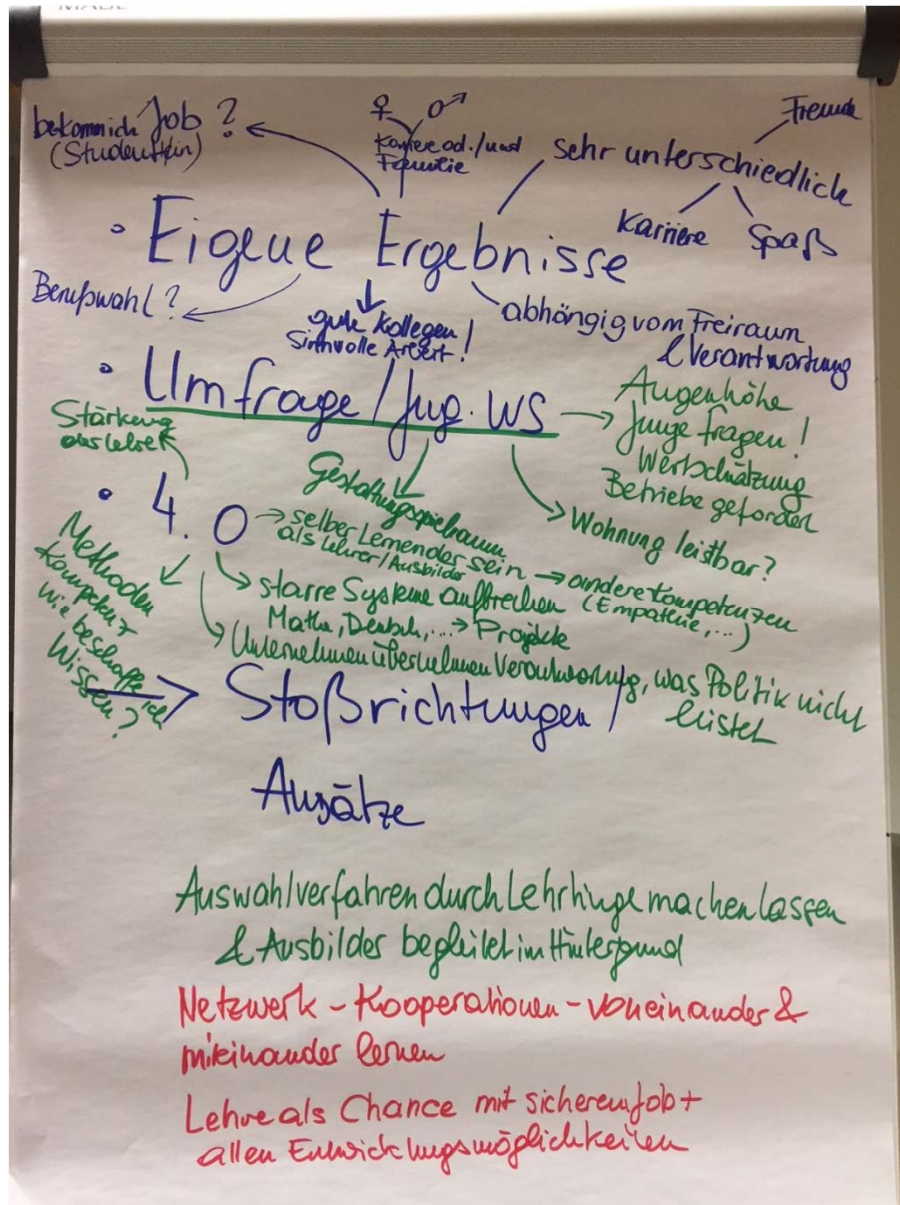 bekomm ich Job?
(StudentIn)
♀ ♂
Karriere od./und
Familie
sehr unterschiedlich
Freunde
Karriere
Spaß
• Eigene Ergebnisse
Berufswahl?
gute Kollegen
Sinnvolle Arbeit!
abhängig vom Freiraum
& Verantwortung
• Umfrage/Jug. WS
Augenhöhe
Junge fragen!
Wertschätzung
Betriebe gefordert
Wohnung leistbar?
Gestaltungsspielraum
Stärkung
der Lehre
• 4.0
selber Lernender sein
als Lehrer/Ausbilder
andere Kompetenzen
(Empathie, ...)
starre Systeme aufbrechen
Mathe, Deutsch, ... → Projekte
Unternehmen übernehmen Verantwortung, was Politik nicht
leistet
Methoden
Kompetenz
Wie beschaffe ich
Wissen?
→ Stoßrichtungen/
Ansätze
Auswahlverfahren durch Lehrlinge machen lassen
& Ausbilder begleitet im Hintergrund
Netzwerk - Kooperationen - voneinander &
miteinander lernen
Lehre als Chance mit sicherem Job +
allen Entwicklungsmöglichkeiten